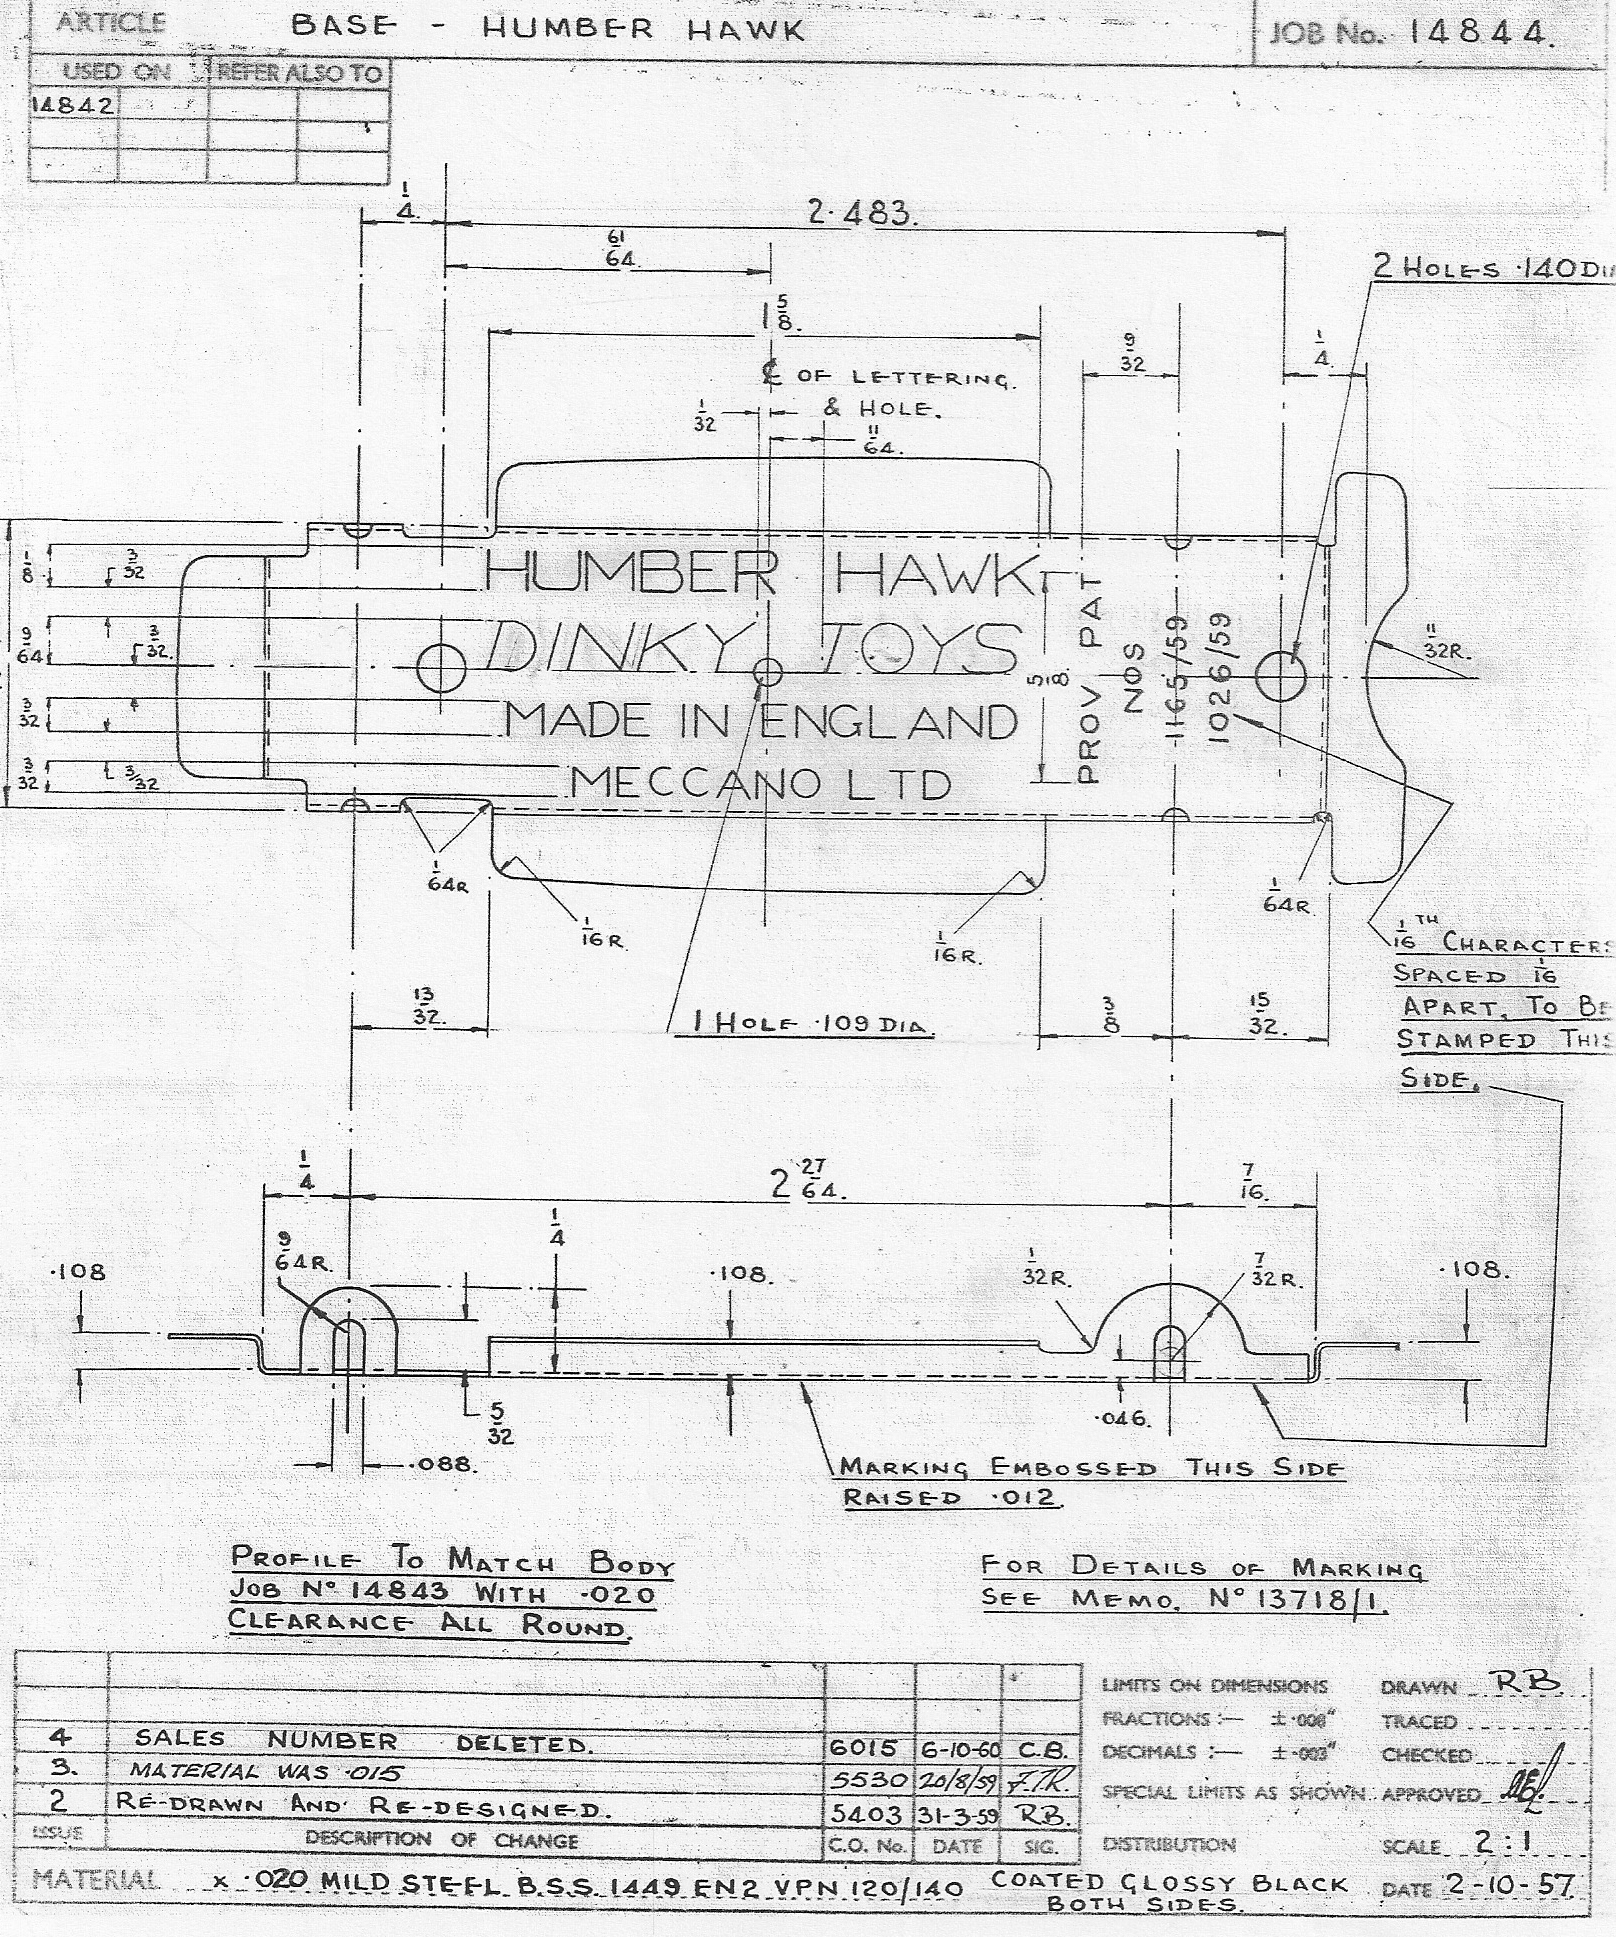 ARTICLE BASE - HUMBER HAWK JOB No. 14844.
USED ON REFER ALSO TO
14842
1/4. 2.483.
61/64.
2 HOLES .140 DI
1 5/8.
9/32 1/4.
℄ OF LETTERING.
1/32 & HOLE.
11/64.
1/8 3/32 HUMBER HAWK
9/64 3/32. DINKY TOYS
3/32 MADE IN ENGLAND
3/32 3/32 MECCANO LTD
5/8.
PROV PAT
NOS
1165/59
1026/59
11/32R.
1/64R
1/16R.
1/16R.
1/64R.
1/16TH CHARACTERS
SPACED 1/16
APART. TO BE
STAMPED THIS
SIDE.
13/32. 1 HOLE .109 DIA. 3/8 15/32.
1/4 2 27/64. 7/16.
.108 9/64R. 1/4 .108. 1/32R. 7/32R. .108.
5/32 .046.
.088.
MARKING EMBOSSED THIS SIDE
RAISED .012.
PROFILE TO MATCH BODY
JOB No 14843 WITH .020
CLEARANCE ALL ROUND.
FOR DETAILS OF MARKING
SEE MEMO. No 13718/1.
4 SALES NUMBER DELETED. 6015 6-10-60 C.B.
3. MATERIAL WAS .015 5530 20/8/59 F.T.R.
2 RE-DRAWN AND RE-DESIGNED. 5403 31-3-59 R.B.
ISSUE DESCRIPTION OF CHANGE C.O. No. DATE SIG.
LIMITS ON DIMENSIONS DRAWN RB
FRACTIONS :— ± TRACED
DECIMALS :— ±.003" CHECKED
SPECIAL LIMITS AS SHOWN. APPROVED
DISTRIBUTION SCALE 2:1
MATERIAL x .020 MILD STEEL B.S.S. 1449 EN2 VPN 120/140 COATED GLOSSY BLACK
BOTH SIDES. DATE 2-10-57